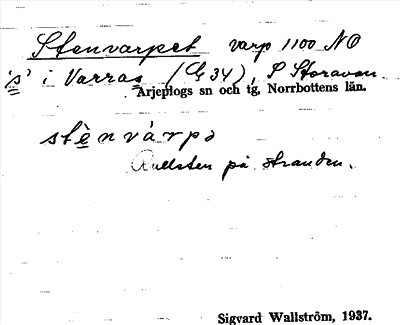 Stenvarpet varp 1100 NO
's' i Varras (G 34), S Storavan.
Arjeplogs sn och tg, Norrbottens län.
stènvárpə
Rullsten på stranden.
Sigvard Wallström, 1937.